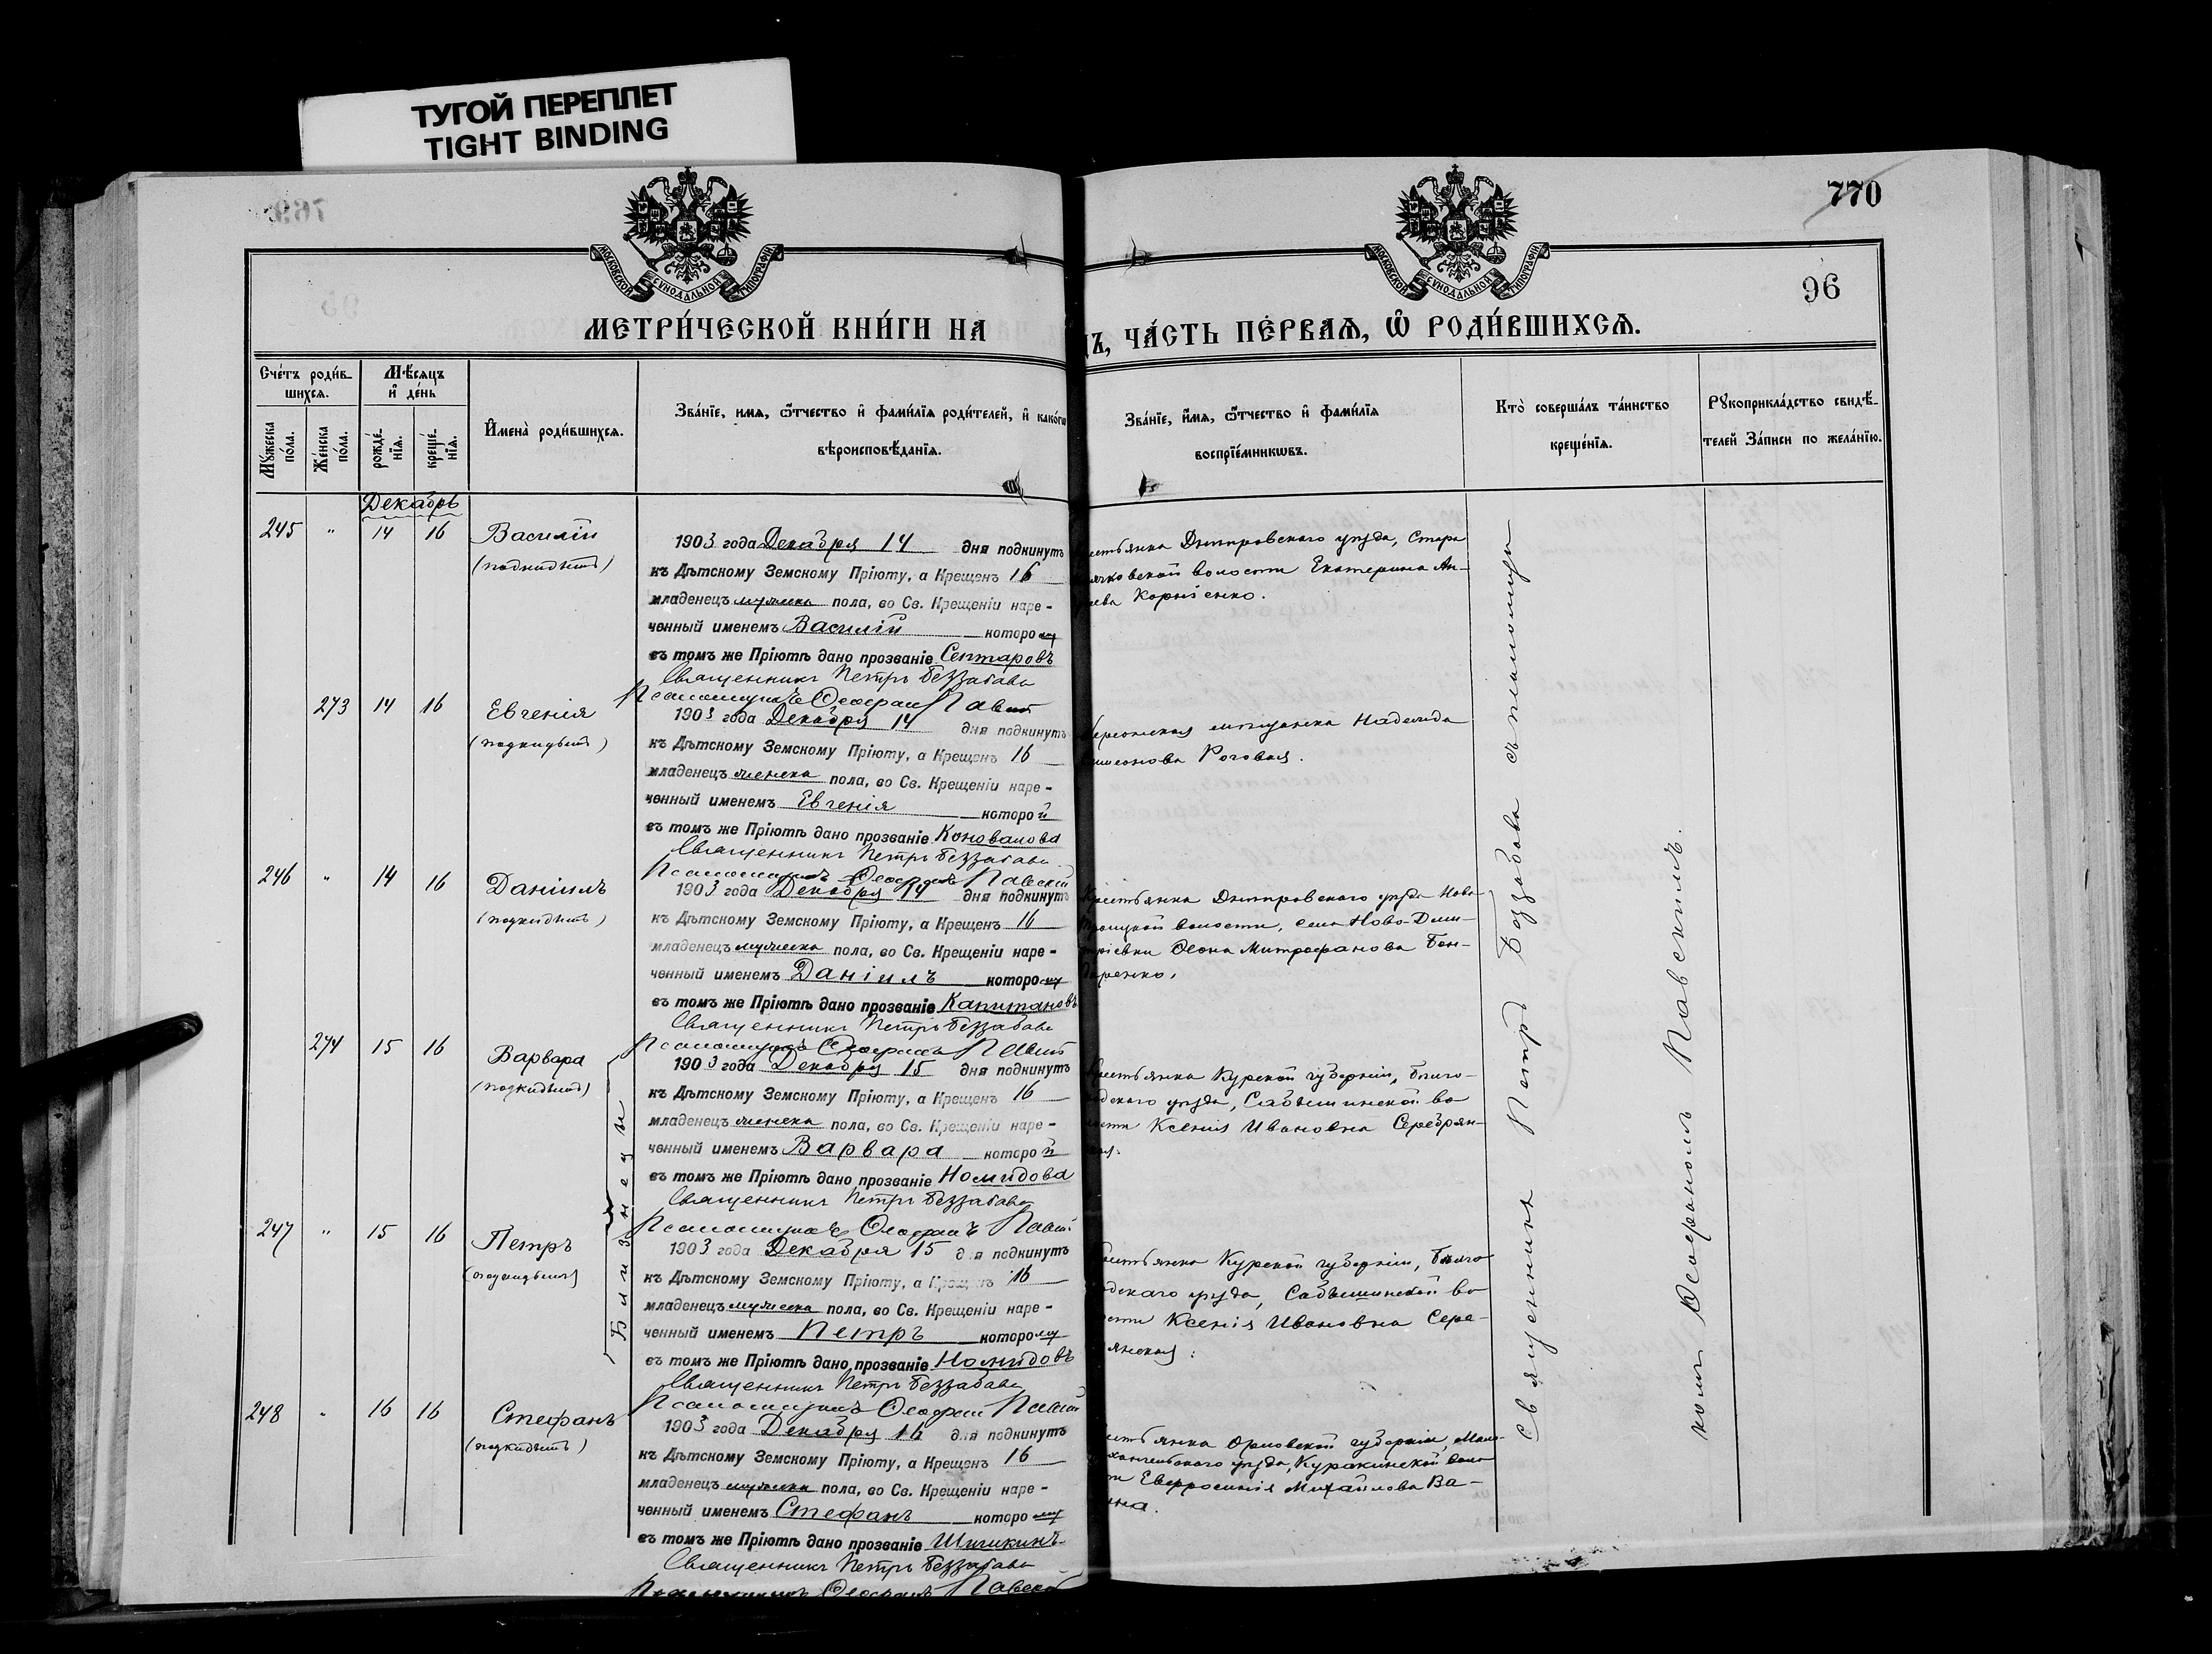 ТУГОЙ ПЕРЕПЛЕТ
TIGHT BINDING
770
МОСКОВСКОЙ СѴНОДАЛЬНОЙ ТИПОГРАФІИ
МОСКОВСКОЙ СѴНОДАЛЬНОЙ ТИПОГРАФІИ
96
МЕТРИ́ЧЕСКОЙ КНИ́ГИ НА
ДЪ, ЧА́СТЬ ПЕ́РВАѦ, Ѡ҆ РОДИ́ВШИХСѦ.
Сче́тъ роди́в-
шихсѧ.
Мѣ́сяцъ
и҆ де́нь
Мꙋ́жеска по́ла.
Же́нска по́ла.
рожде́-нїѧ.
креще́-нїѧ.
И҆мена̀ роди́вшихсѧ.
Зва́нїе, и҆мѧ, ѻ҆́тчество и҆ фами́лїѧ роди́телей, и҆ како́гѡ
вѣроисповѣ́данїѧ.
Зва́нїе, и҆́мѧ, ѻ҆́тчество и҆ фами́лїѧ
воспрїе́мникѡвъ.
Кто̀ соверша́лъ та́инство
креще́нїѧ.
Рꙋкоприкла́дство свидѣ́-
телей За́писи по жела́нїю.
Декабрь
245 " 14 16 Василій
(подкидышъ)
1903 года Декабря 14 дня подкинутъ
къ Дѣтскому Земскому Пріюту, а Крещенъ 16
младенецъ мужеска пола, во Св. Крещеніи наре-
ченный именемъ Василій которому
въ томъ же Пріютѣ дано прозваніе Септаровъ
Священникъ Петръ Беззабава
Псаломщикъ Ѳеофанъ Павскій
естьянка Днѣпровскаго уѣзда, Старо
ячковской волости Екатерина Ан-
еева Корніенко.
273 14 16 Евгенія
(подкидышъ)
1903 года Декабря 14 дня подкинутъ
къ Дѣтскому Земскому Пріюту, а Крещенъ 16
младенецъ женска пола, во Св. Крещеніи наре-
ченный именемъ Евгенія которой
въ томъ же Пріютѣ дано прозваніе Коновалова
Священникъ Петръ Беззабава
Псаломщикъ Ѳеофанъ Павскій
Херсонская мѣщанка Надежда
имеонова Роговая.
246 " 14 16 Даніилъ
(подкидышъ)
1903 года Декабря 14 дня подкинутъ
къ Дѣтскому Земскому Пріюту, а Крещенъ 16
младенецъ мужеска пола, во Св. Крещеніи наре-
ченный именемъ Даніилъ которому
въ томъ же Пріютѣ дано прозваніе Капитановъ
Священникъ Петръ Беззабава
Псаломщикъ Ѳеофанъ Павскій
Крестьянка Днѣпровскаго уѣзда Ново
Троицкой волости, села Ново-Дми-
тріевки Ѳеона Митрофанова Бон-
даренко.
274 15 16 Варвара
(подкидышъ)
1903 года Декабря 15 дня подкинутъ
къ Дѣтскому Земскому Пріюту, а Крещенъ 16
младенецъ женска пола, во Св. Крещеніи наре-
ченный именемъ Варвара которой
въ томъ же Пріютѣ дано прозваніе Номидова
Священникъ Петръ Беззабава
Псаломщикъ Ѳеофанъ Павскій
Крестьянка Курской губерніи, Бѣлго-
одскаго уѣзда, Сабынинской во
лости Ксенія Ивановна Серебрян-
ская.
Близнецы
247 " 15 16 Петръ
(подкидышъ)
1903 года Декабря 15 дня подкинутъ
къ Дѣтскому Земскому Пріюту, а Крещенъ 16
младенецъ мужеска пола, во Св. Крещеніи наре-
ченный именемъ Петръ которому
въ томъ же Пріютѣ дано прозваніе Номидовъ
Священникъ Петръ Беззабава
Псаломщикъ Ѳеофанъ Павскій
естьянка Курской губерніи, Бѣлго
одскаго уѣзда, Сабынинской во
ости Ксенія Ивановна Сере-
янская.
248 " 16 16 Стефанъ
(подкидышъ)
1903 года Декабря 16 дня подкинутъ
къ Дѣтскому Земскому Пріюту, а Крещенъ 16
младенецъ мужеска пола, во Св. Крещеніи наре-
ченный именемъ Стефанъ которому
въ томъ же Пріютѣ дано прозваніе Шишкинъ
Священникъ Петръ Беззабава
Псаломщикъ Ѳеофанъ Павскій
естьянка Орловской губерніи, Мало-
хангельскаго уѣзда, Куракинской воло
ти Евфросинія Михайлова Ва-
ина.
Священникъ Петръ Беззабава съ псаломщи
комъ Ѳеофаномъ Павскимъ.